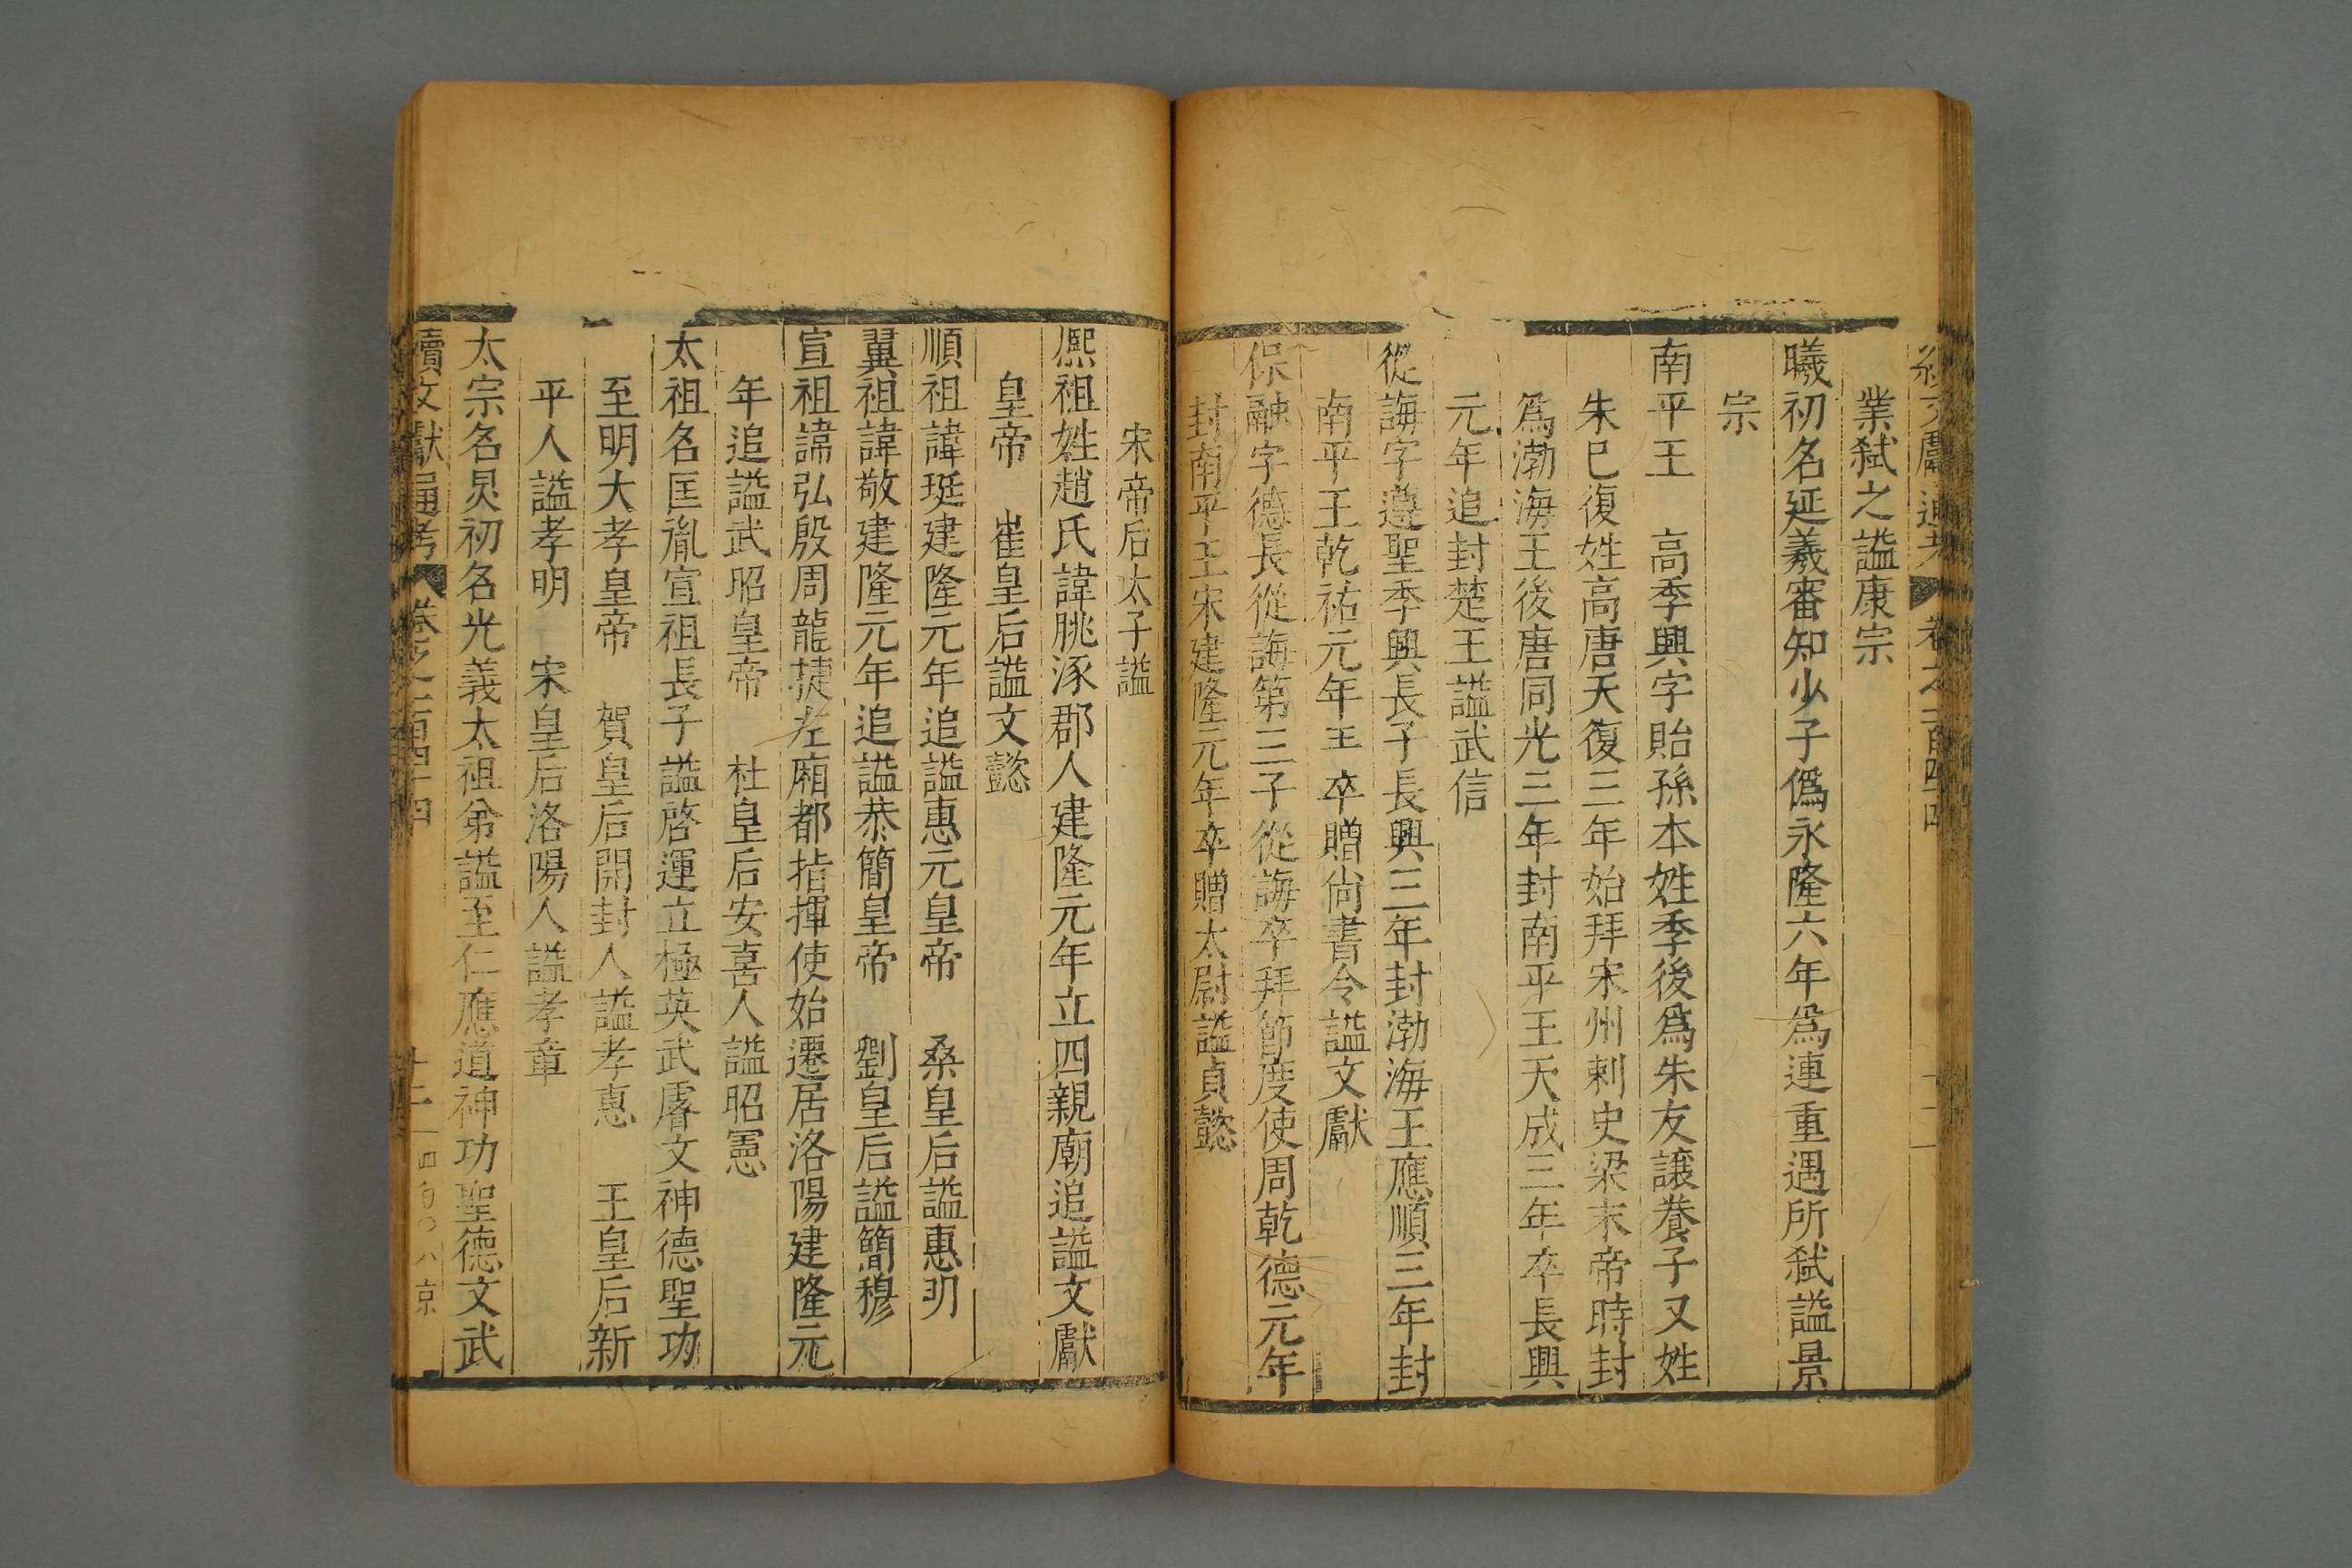 續文獻通考 卷之二百四十四 十二
業弑之謚康宗
曦初名延羲審知少子僞永隆六年爲連重遇所弑謚景
宗
南平王 高季興字貽孫本姓季後爲朱友讓養子又姓
朱已復姓高唐天復三年始拜宋州刺史梁末帝時封
爲渤海王後唐同光三年封南平王天成三年卒長興
元年追封楚王謚武信
從誨字遵聖季興長子長興三年封渤海王應順三年封
南平王乾祐元年王卒贈尚書令謚文獻
保融字德長從誨第三子從誨卒拜節度使周乾德元年
封南平王宋建隆元年卒贈太尉謚貞懿
宋帝后太子謚
熈祖姓趙氏諱脁涿郡人建隆元年立四親廟追謚文獻
皇帝 崔皇后謚文懿
順祖諱珽建隆元年追謚惠元皇帝 桑皇后謚惠明
翼祖諱敬建隆元年追謚恭簡皇帝 劉皇后謚簡穆
宣祖諱弘殷周龍㨗左廂都指揮使始遷居洛陽建隆元
年追謚武昭皇帝 杜皇后安喜人謚昭憲
太祖名匡胤宣祖長子謚啓運立極英武睿文神德聖功
至明大孝皇帝 賀皇后開封人謚孝惠 王皇后新
平人謚孝明 宋皇后洛陽人謚孝章
太宗名炅初名光義太祖弟謚至仁應道神功聖德文武
續文獻通考 卷之二百四十四 十二 四百〇八 京